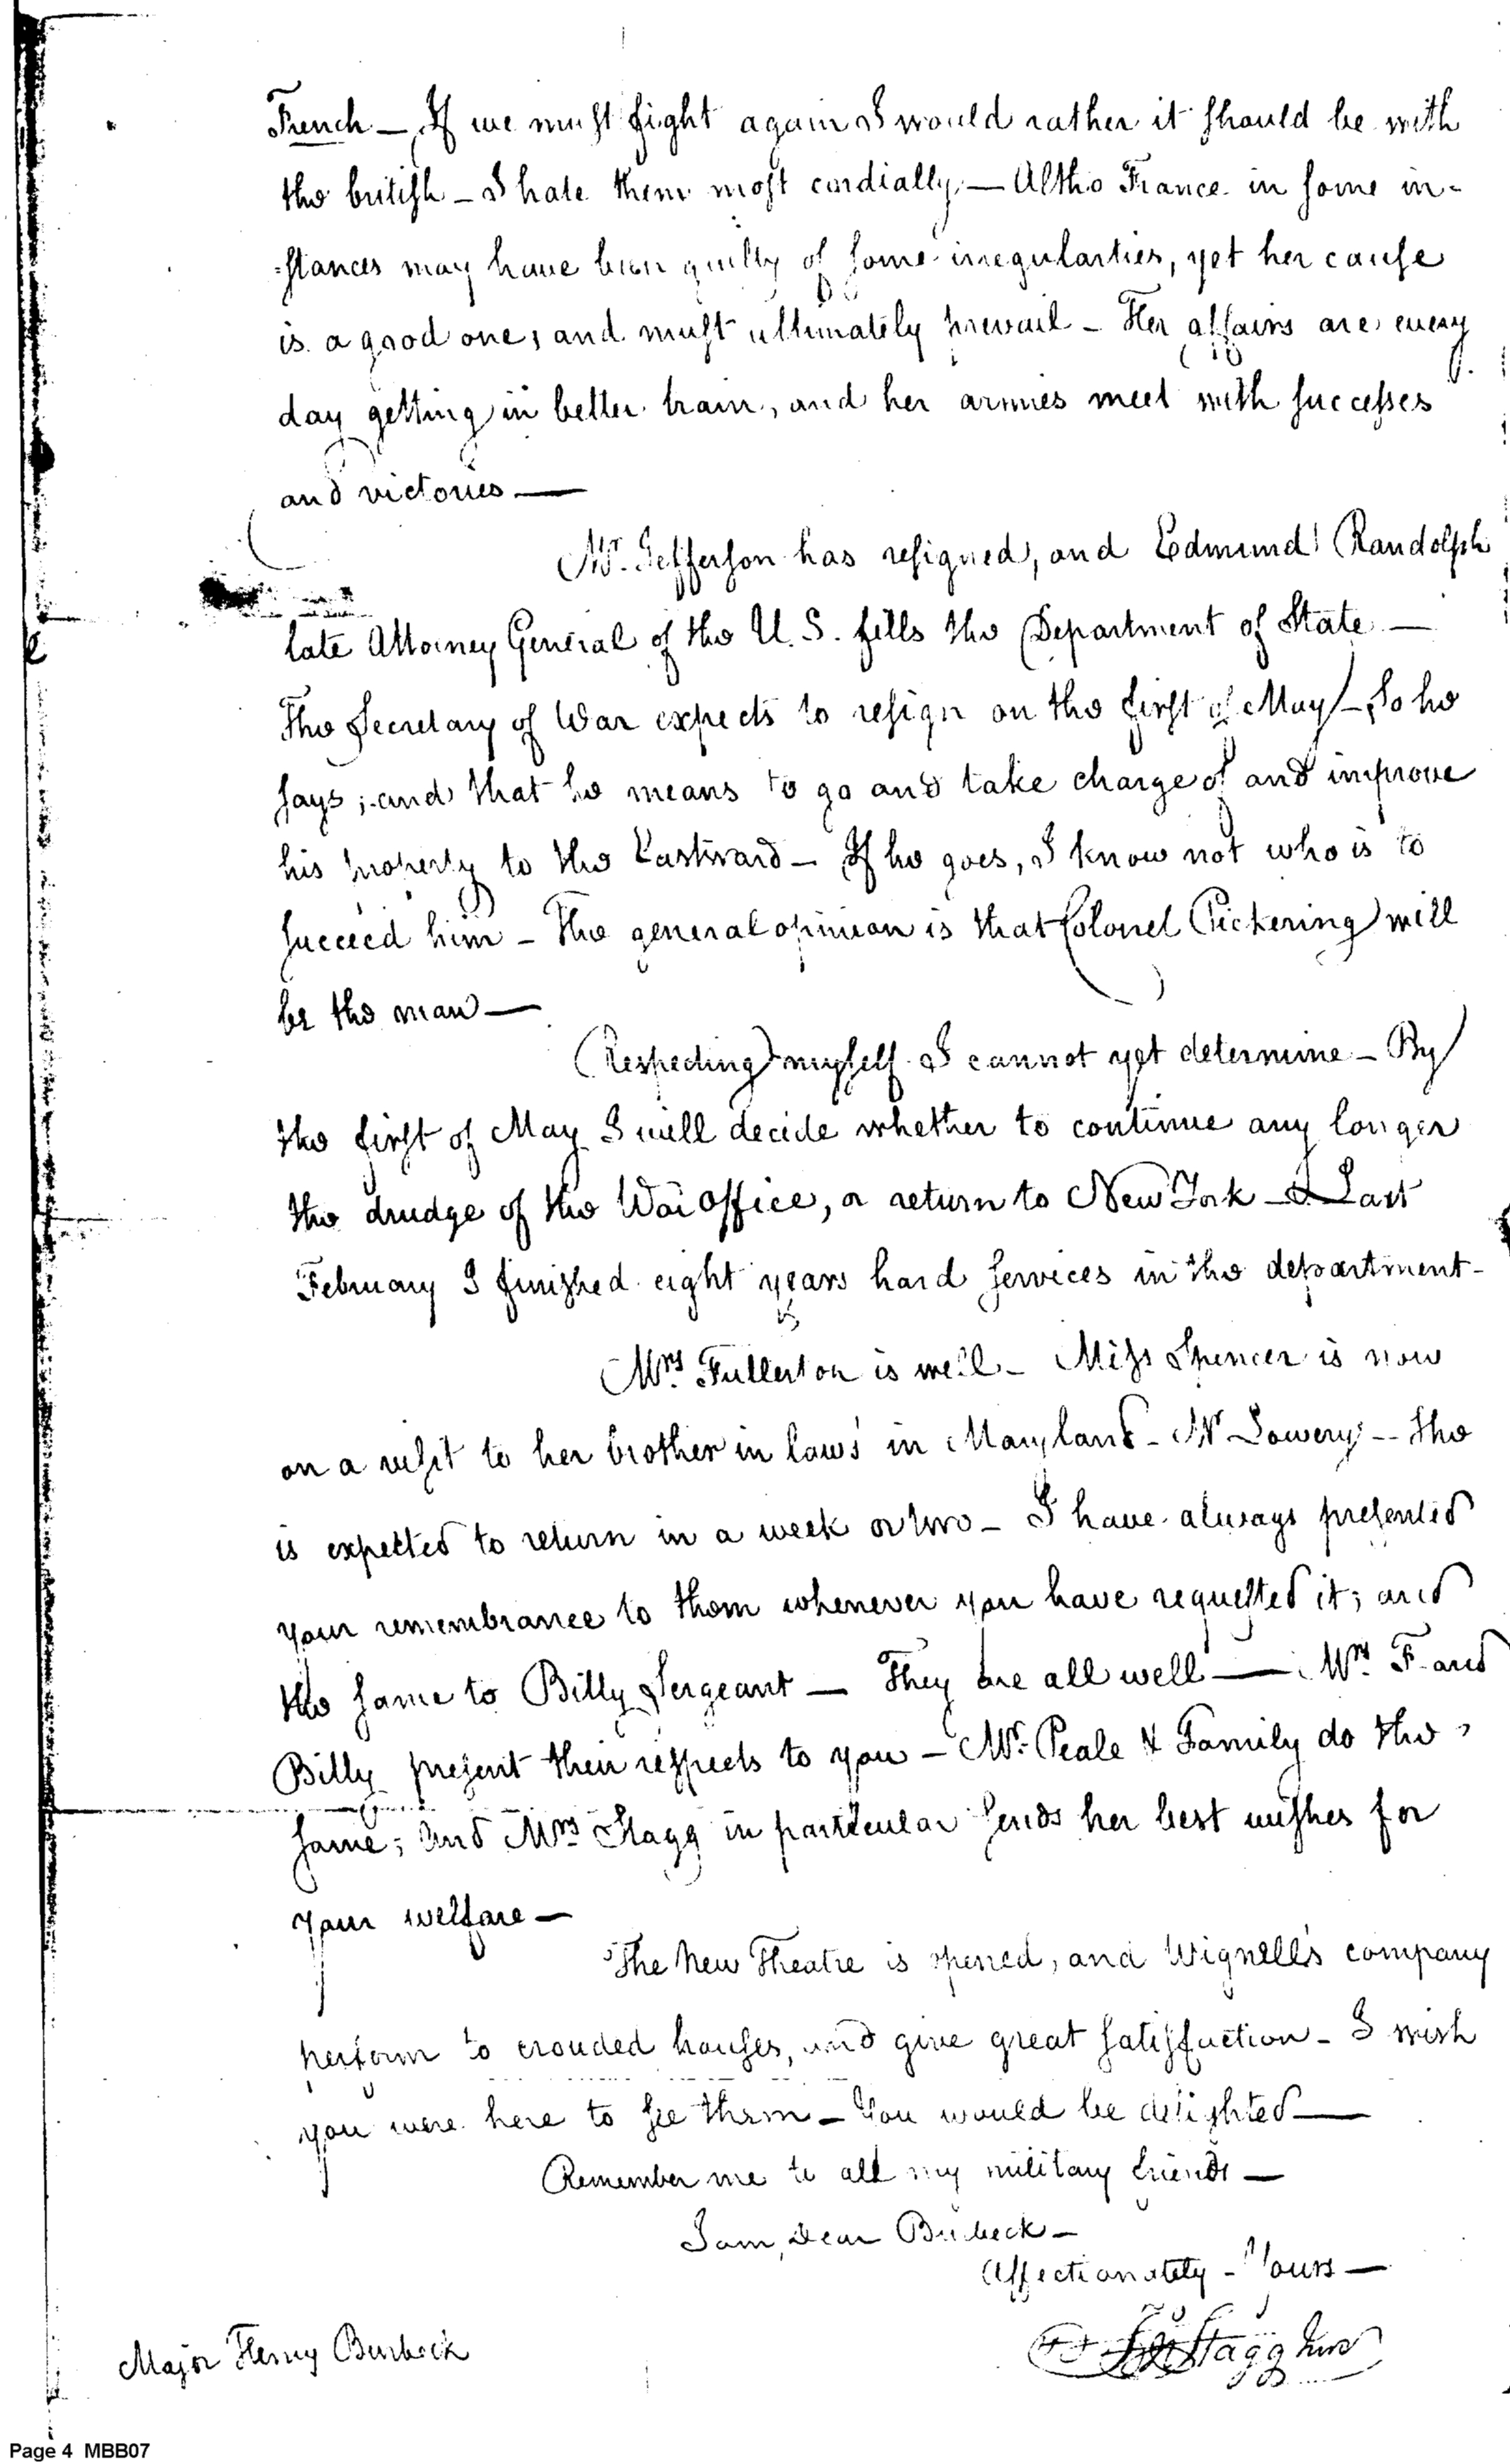 French — If we must fight again I would rather it should be with
the british — I hate them most cordially, — Altho France in some in-
-stances may have been guilty of some irregularties, yet her cause
is a good one, and must ultimately prevail — Her affairs are every
day getting in better train, and her armies meet with successes
and victories —
Mr. Jefferson has resigned, and Edmund Randolph
late Attorney General of the U. S. fills the Department of State —
The Secretary of War expects to resign on the first of May — so he
says; and that he means to go and take charge of and improve
his property to the Eastward — If he goes, I know not who is to
succeed him — The general opinion is that Colonel Pickering will
be the man —
Respecting myself I cannot yet determine — By
the first of May I will decide whether to continue any longer
the drudge of the War office, or return to New York — Last
February I finished eight years hard services in the department —
Mrs. Fullerton is well — Miss Spencer is now
on a visit to her brother in laws in Maryland — Mr Lowery — She
is expected to return in a week or two — I have always presented
your remembrance to them whenever you have requested it; and
the same to Billy Sergeant — They are all well — Mrs. F. and
Billy present their respects to you — Mr. Peale & Family do the
same; and Mrs Stagg in particular sends her best wishes for
your welfare —
The New Theatre is opened, and Wignell's company
perform to crouded houses, and give great satisfaction — I wish
you were here to see them — You would be delighted —
Remember me to all my military friends —
I am, dear Burbeck —
Affectionately — Yours —
Stagg Junr
Major Henry Burbeck
Page 4 MBB07